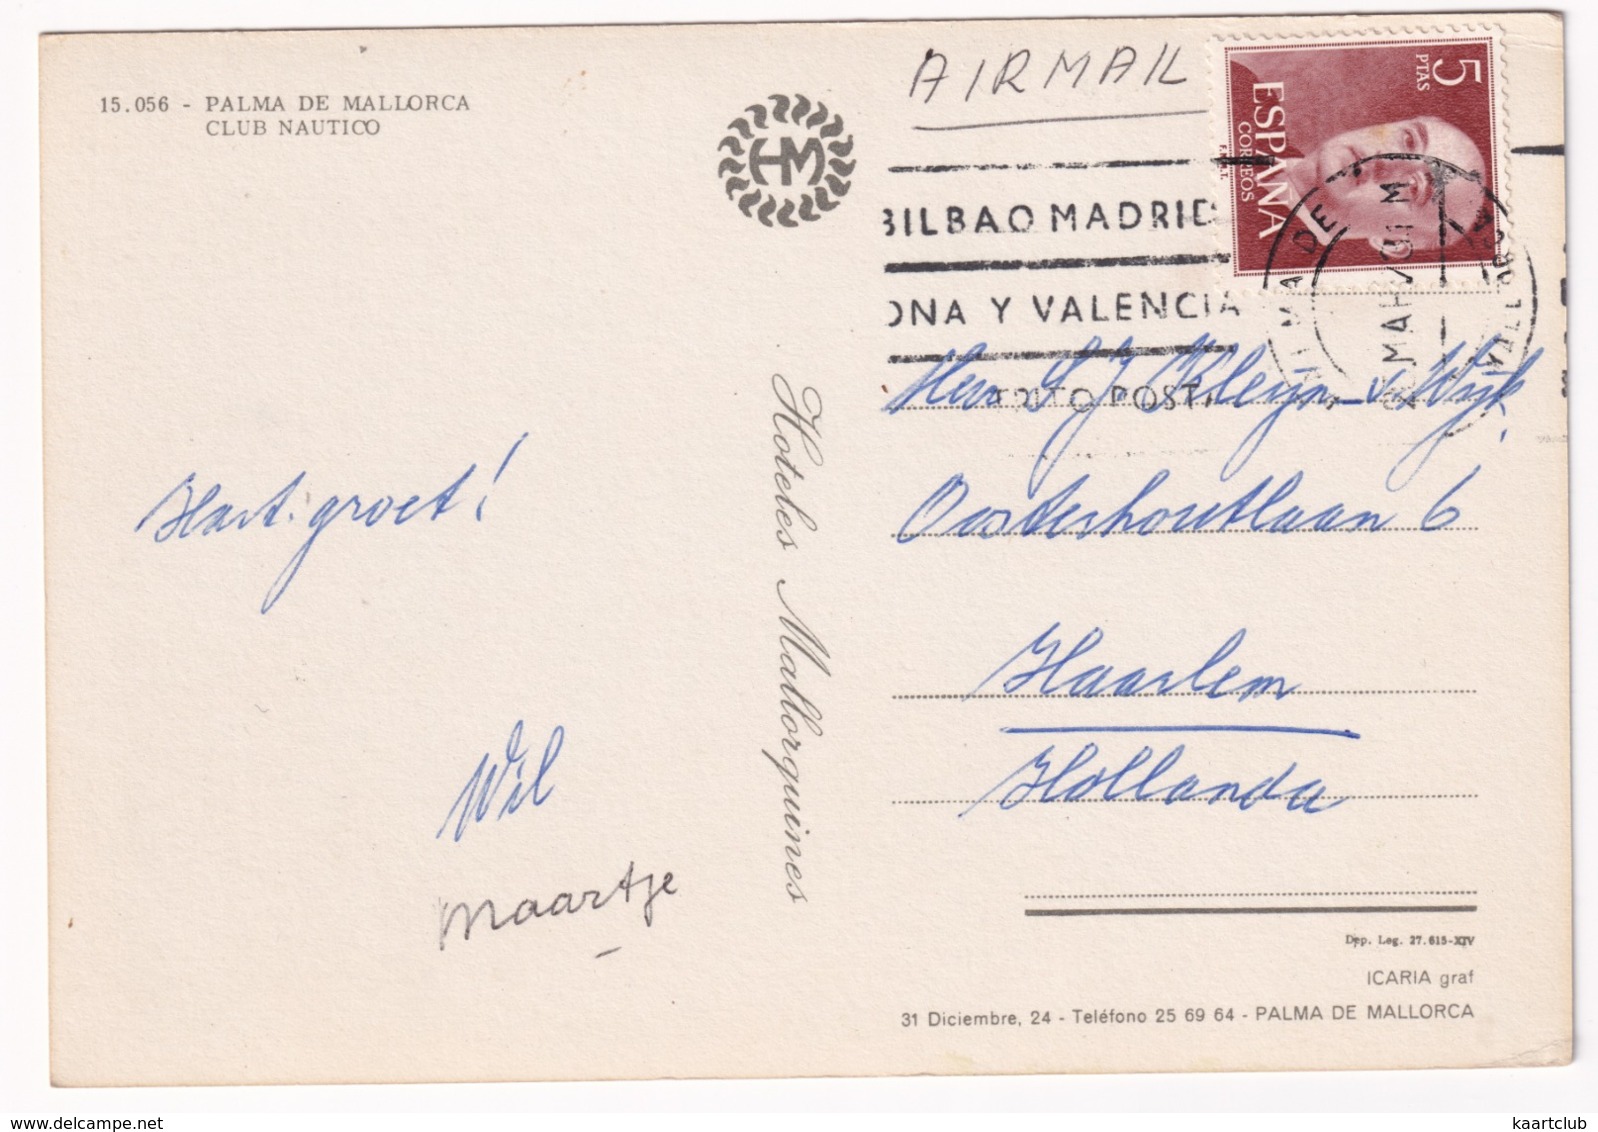 15.056 - PALMA DE MALLORCA
CLUB NAUTICO
HM
AIRMAIL
5
PTAS
ESPAÑA
CORREOS
F.N.M.T.
BILBAO MADRID
ONA Y VALENCIA
TRITO POSTA
PALMA DE MALLORCA
Hart. groet!
Wil
Maartje
Hoteles Mallorquines
Heer S J Kleijn - v. Wijk
Oosterhoutlaan 6
Haarlem
Hollanda
Dep. Leg. 27.615-XIV
ICARIA graf
31 Diciembre, 24 - Teléfono 25 69 64 - PALMA DE MALLORCA
kaartclub
www.delcampe.net